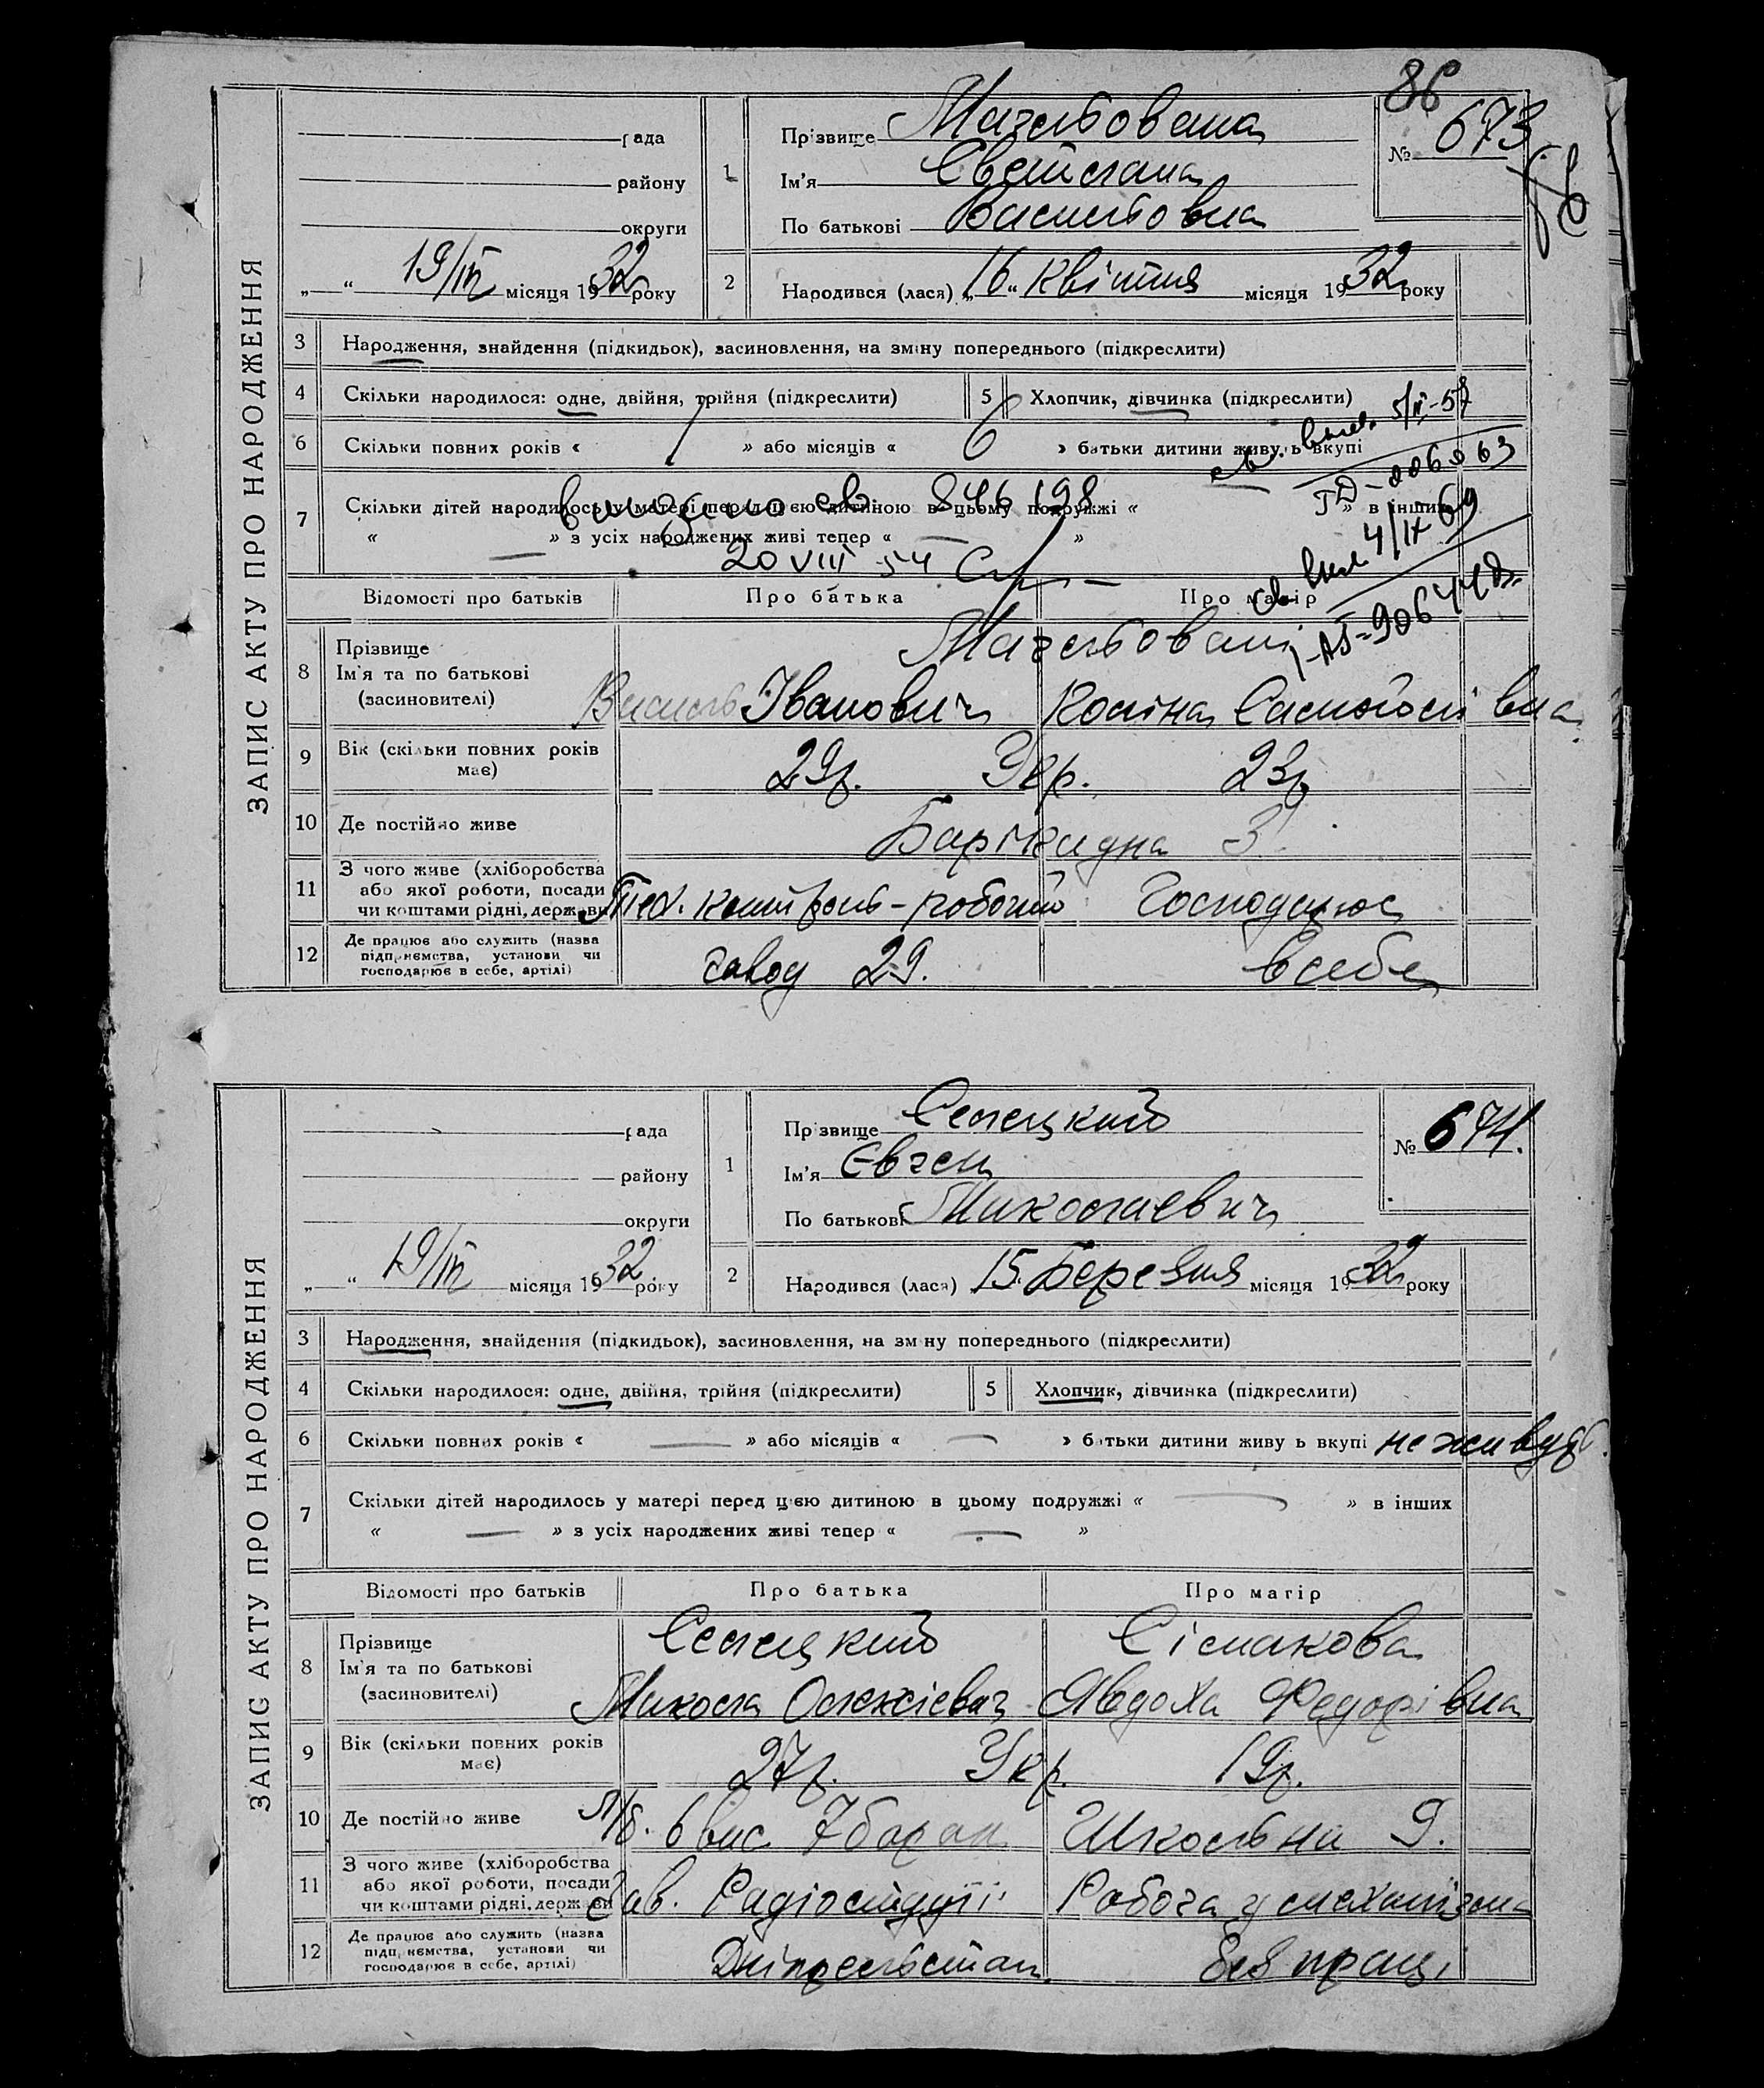 86
ЗАПИС АКТУ ПРО НАРОДЖЕННЯ
рада
району
округи
„ “ 19/IV місяця 1932 року
1
Прізвище
Ім'я Світлана
По батькові Васильовна
№ 673
86
2
Народився (лася) „16“ квітня місяця 1932 року
3 Народження, знайдення (підкидьок), засиновлення, на зміну попереднього (підкреслити)
4 Скільки народилося: одне, двійня, трійня (підкреслити)
5 Хлопчик, дівчинка (підкреслити)
6 Скільки повних років « 1 » або місяців « 6 » батьки дитини живуть вкупі
7 Скільки дітей народилось у матері перед цією дитиною в цьому подружжі « » в інших
« — » з усіх народжених живі тепер « — »
20 VIII 54
4/IX 69
Відомості про батьків
Про батька
Про матір
8 Прізвище
Ім'я та по батькові
(засиновителі)
Василь Іванович
9 Вік (скільки повних років має)
29р. Укр. 23р
10 Де постійно живе
Барікадна 3
11 З чого живе (хліборобства або якої роботи, посади чи коштами рідні, держави
контроль-робочий
12 Де працює або служить (назва підприємства, установи чи господарює в себе, артілі)
завод 29.
в себе
ЗАПИС АКТУ ПРО НАРОДЖЕННЯ
рада
району
округи
„ “ 19/IV місяця 1932 року
1
Прізвище Селецкий
Ім'я Євген
По батькові Миколаевич
№ 674.
2
Народився (лася) 15. Березня місяця 1932 року
3 Народження, знайдення (підкидьок), засиновлення, на зміну попереднього (підкреслити)
4 Скільки народилося: одне, двійня, трійня (підкреслити)
5 Хлопчик, дівчинка (підкреслити)
6 Скільки повних років « — » або місяців « — » батьки дитини живуть вкупі не живуть.
7 Скільки дітей народилось у матері перед цією дитиною в цьому подружжі « — » в інших
« — » з усіх народжених живі тепер « — »
Відомості про батьків
Про батька
Про матір
8 Прізвище
Ім'я та по батькові
(засиновителі)
Селецкий
Сімакова
Микола Олексієвич
Явдоха Федорівна
9 Вік (скільки повних років має)
27р. Укр. 19р.
10 Де постійно живе
Л/б. 6 вис. 7 барак
Школьна 9.
11 З чого живе (хліборобства або якої роботи, посади чи коштами рідні, держави
Зав. Радіостудії
Робоча у механізма
12 Де працює або служить (назва підприємства, установи чи господарює в себе, артілі)
Дніпрельстан.
без праці